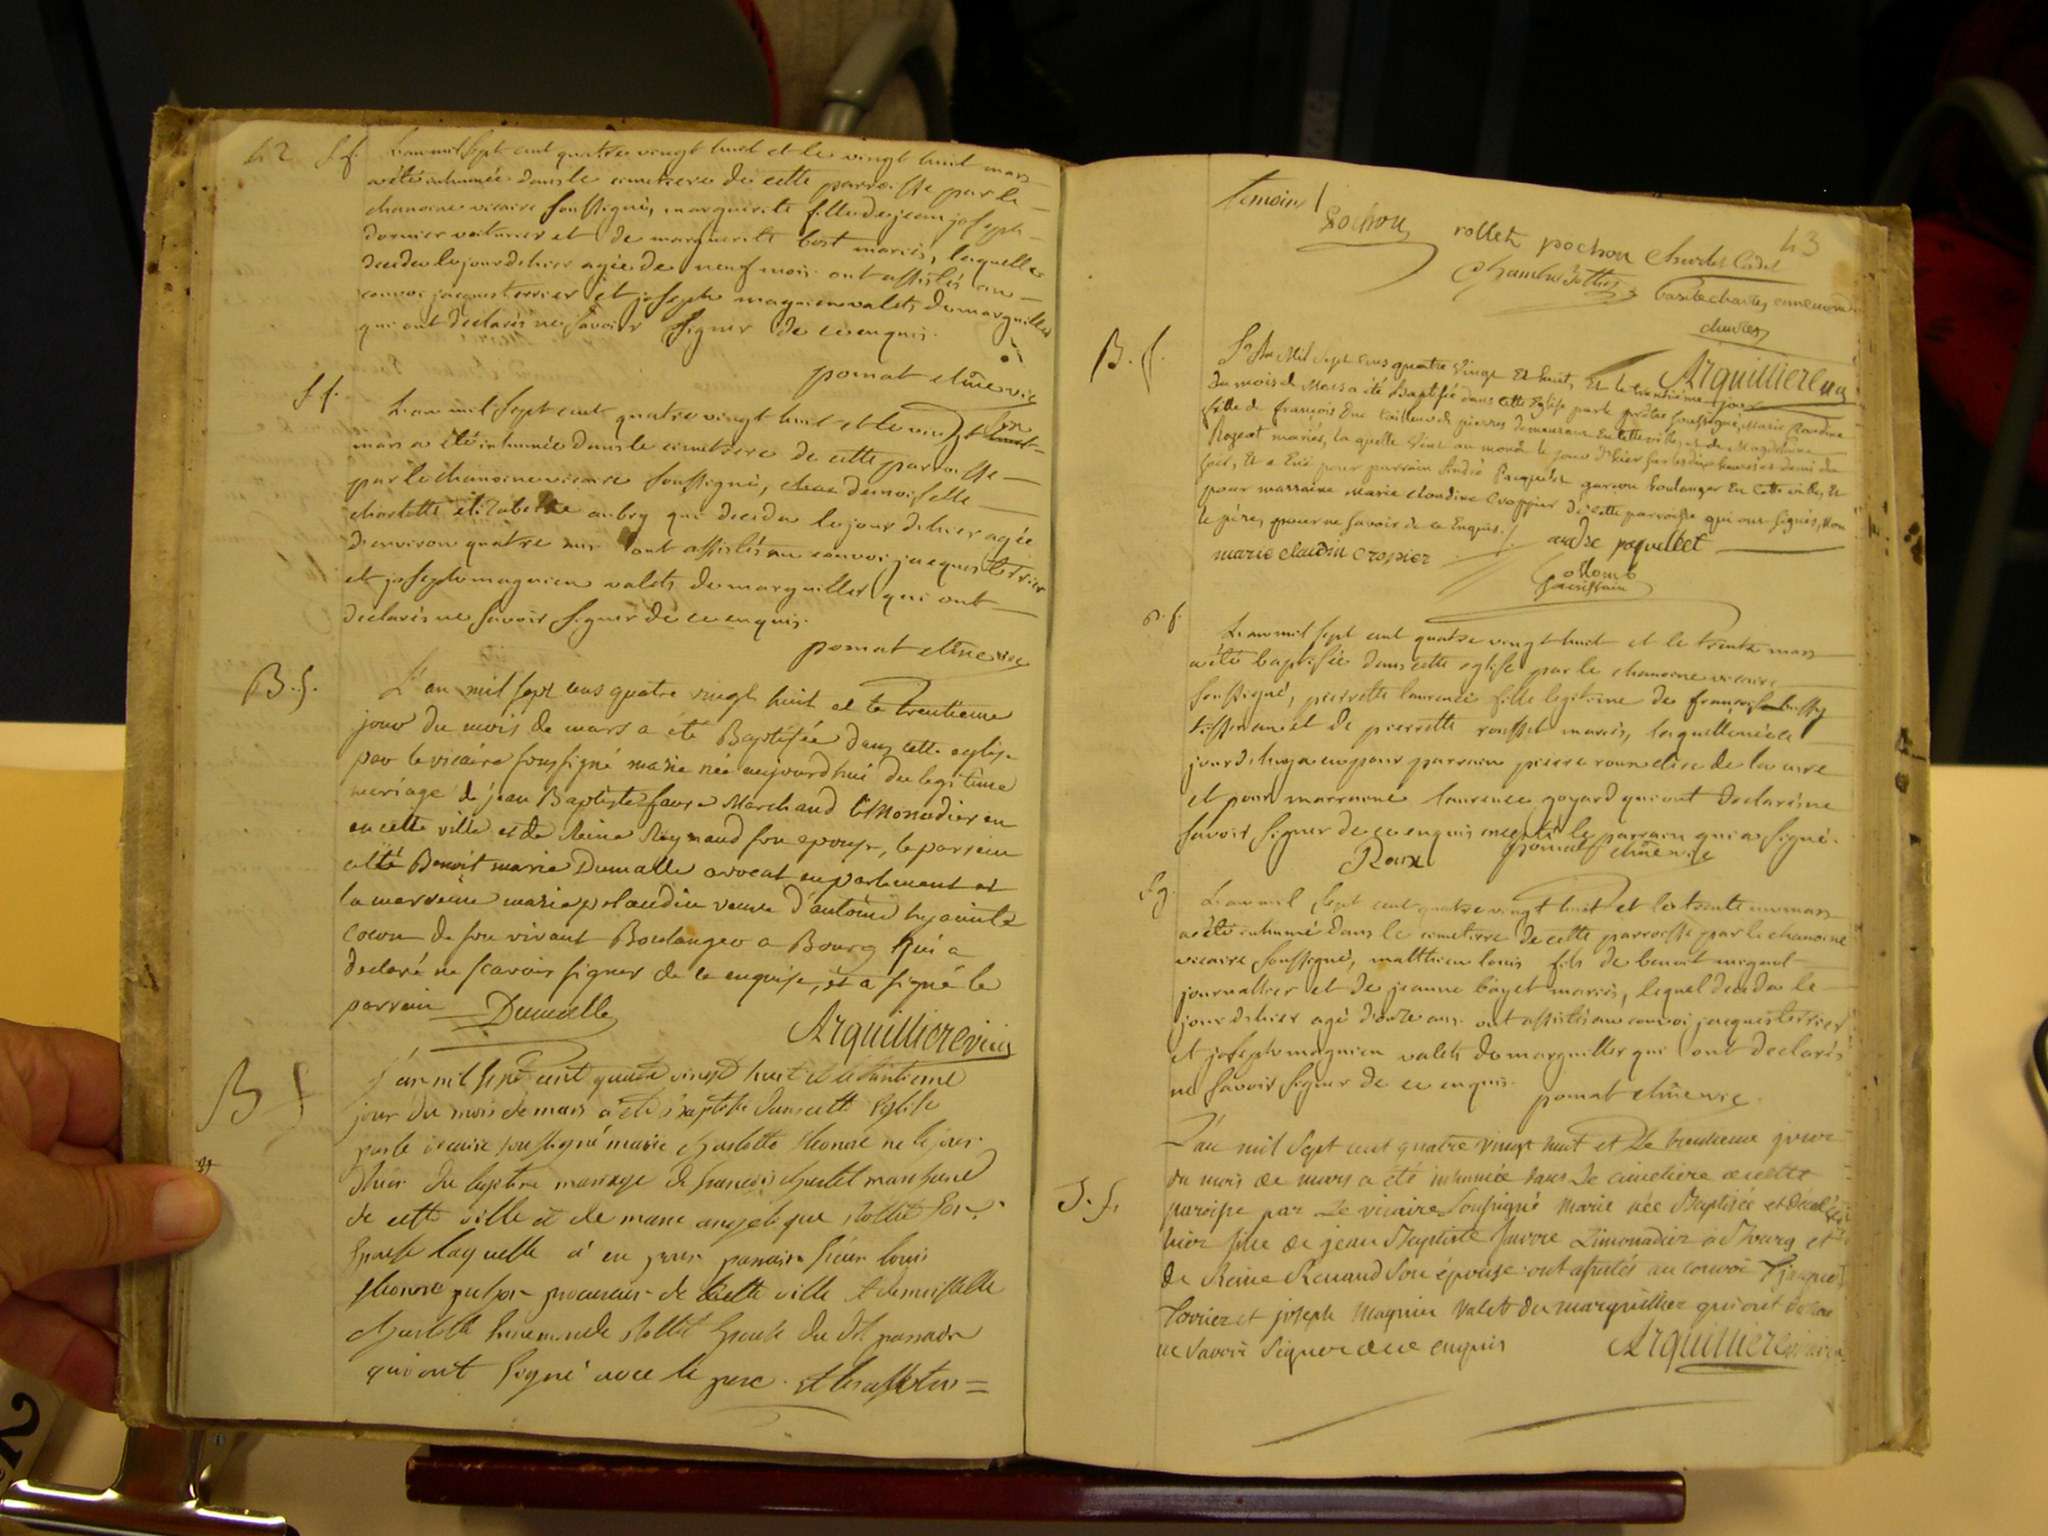 42
S f.
L'an mil sept cent quatre vingt huit et le vingt huit mars
a été inhumée dans le cimetiere de cette parroisse par le
chanoine vicaire soussigné, marguerite fille de jean joseph
dornier voiturier et de marguerite bost mariés, laquelle
deceda le jour d'hier agée de neuf mois. ont assistés au
convoi jacques terrier et joseph magnien valets du marguillier
qui ont declarés ne savoir signer de ce enquis.
pomat chne vic
S f.
L'an mil sept cent quatre vingt huit et le vingt
mars a été inhumée dans le cimetiere de cette parroisse
par le chanoine vicaire soussigné, demoiselle
charlotte elizabethe aubry qui deceda le jour d'hier agée
d'environ quatre ans ont assistés au convoi jacques terrier
et joseph magnien valets du marguillier qui ont
declarés ne savoir signer de ce enquis.
pomat chne vic
B. f.
L'an mil sept cens quatre vingt huit et le trentieme
jour du mois de mars a été Baptisée dans cette eglise
par le vicaire soussigné marie née aujourd'hui du legitime
mariage de jean Baptiste favre Marchand limonadier en
en cette ville et de Reine Reynaud son epouse, le parrein
a été Benoit marie Dumalle avocat en parlement et
la marreine marie polaudin veuve d'antoine hyacinte
cocon de son vivant Boulanger a Bourg qui a
declaré ne scavoir signer de ce enquise, et a signé le
parrein Dumalle
Arquilliere vic
B f
L'an mil sept cent quatre vingt huit et le trentieme
jour du mois de mars a été baptisée dans cette Eglise
par le vicaire soussigné marie charlotte Honoré née le jour
d'hier du legitime mariage de françois chardet marchand
de cette ville et de marie angelique Rollet son
Epouse laquelle a eu pour parrain sieur louis
Honoré procureur de cette ville et demoiselle
charlotte Rollet Epouse du dit parrain
qui ont signé avec le pere. et les assistans =
43
temoins
pochon rollet pochon Chardet Cadet
charles ennemond
Arquilliere vic
B. f.
L'An Mil Sept Cens quatre Vingt Et huit, Et le trentieme jour
du mois de Mars a été Baptisée dans cette Eglise par le prêtre soussigné, Marie Claudine
fille de françois tailleur de pierres demeurant En cette ville, et de Magdelaine
Rozent mariés, laquelle Vint au monde le jour d'hier sur les dix heures et demi du
soir, Et a Eu pour parrain André Paquelet garçon boulanger En cette ville, Et
pour marraine Marie Claudine Croppier de cette parroisse qui ont signés, Non
le père, pour ne savoir de ce Enquis.
marie claudin cropier
andre paquelet
B. f.
L'an mil sept cent quatre vingt huit et le trente mars
a été baptisée dans cette eglise par le chanoine vicaire
soussigné, pierrette laurence fille legitime de françois
tisseran et de pierrette rousset mariés, laquelle née ce
jour d'huy a eu pour parrain pierre roux clerc de la cure
et pour marraine laurence goyard qui ont declarés ne
savoir signer de ce enquis excepté le parrain qui a signé.
Roux pomat chne vic
S g.
L'an mil sept cent quatre vingt huit et le trente un mars
a été inhumé dans le cimetiere de cette parroisse par le chanoine
vicaire soussigné, matthieu louis fils de benoit mignot
journallier et de jeanne bayet mariés, lequel deceda le
jour d'hier agé d'onze ans. ont assistés au convoi jacques terrier
et joseph magnien valets du marguillier qui ont declarés
ne savoir signer de ce enquis.
pomat chne vic.
S. f.
L'an mil sept cent quatre vingt huit et le trentieme jour
du mois de mars a été inhumée dans le cimetiere de cette
paroisse par le vicaire soussigné Marie née Baptisée et decedée
hier fille de jean Baptiste favre Limonadier a Bourg et
de Reine Renaud son épouse ont assistés au convoi jacques
Terrier et joseph Magnien Valets du marguillier qui ont declaré
ne Savoir Signer de ce enquis
Arquilliere vicaire